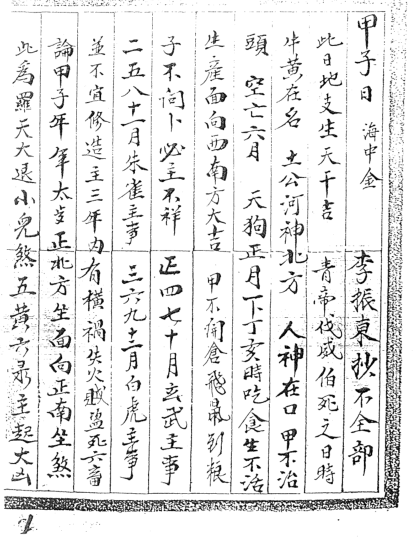 甲子日 海中金 李振東抄不全部
此日地支生天干吉 青帝伐威伯死之日時
牛黄在名 土公河神北方 人神在口 甲不治
頭 空亡六月 天狗正月下丁亥時吃食生不活
生産面向西南方大吉 甲不開倉飛鼠到粮
子不问卜必主不祥 正四七十月玄武主事
二五八十一月朱雀主事 三六九十二月白虎主事
並不宜修造主三年内有橫禍失火賊盜死六畜
論甲子年年太歲正北方坐面向正南坐煞
此為羅天大退小兒煞五黄六录主起大凶